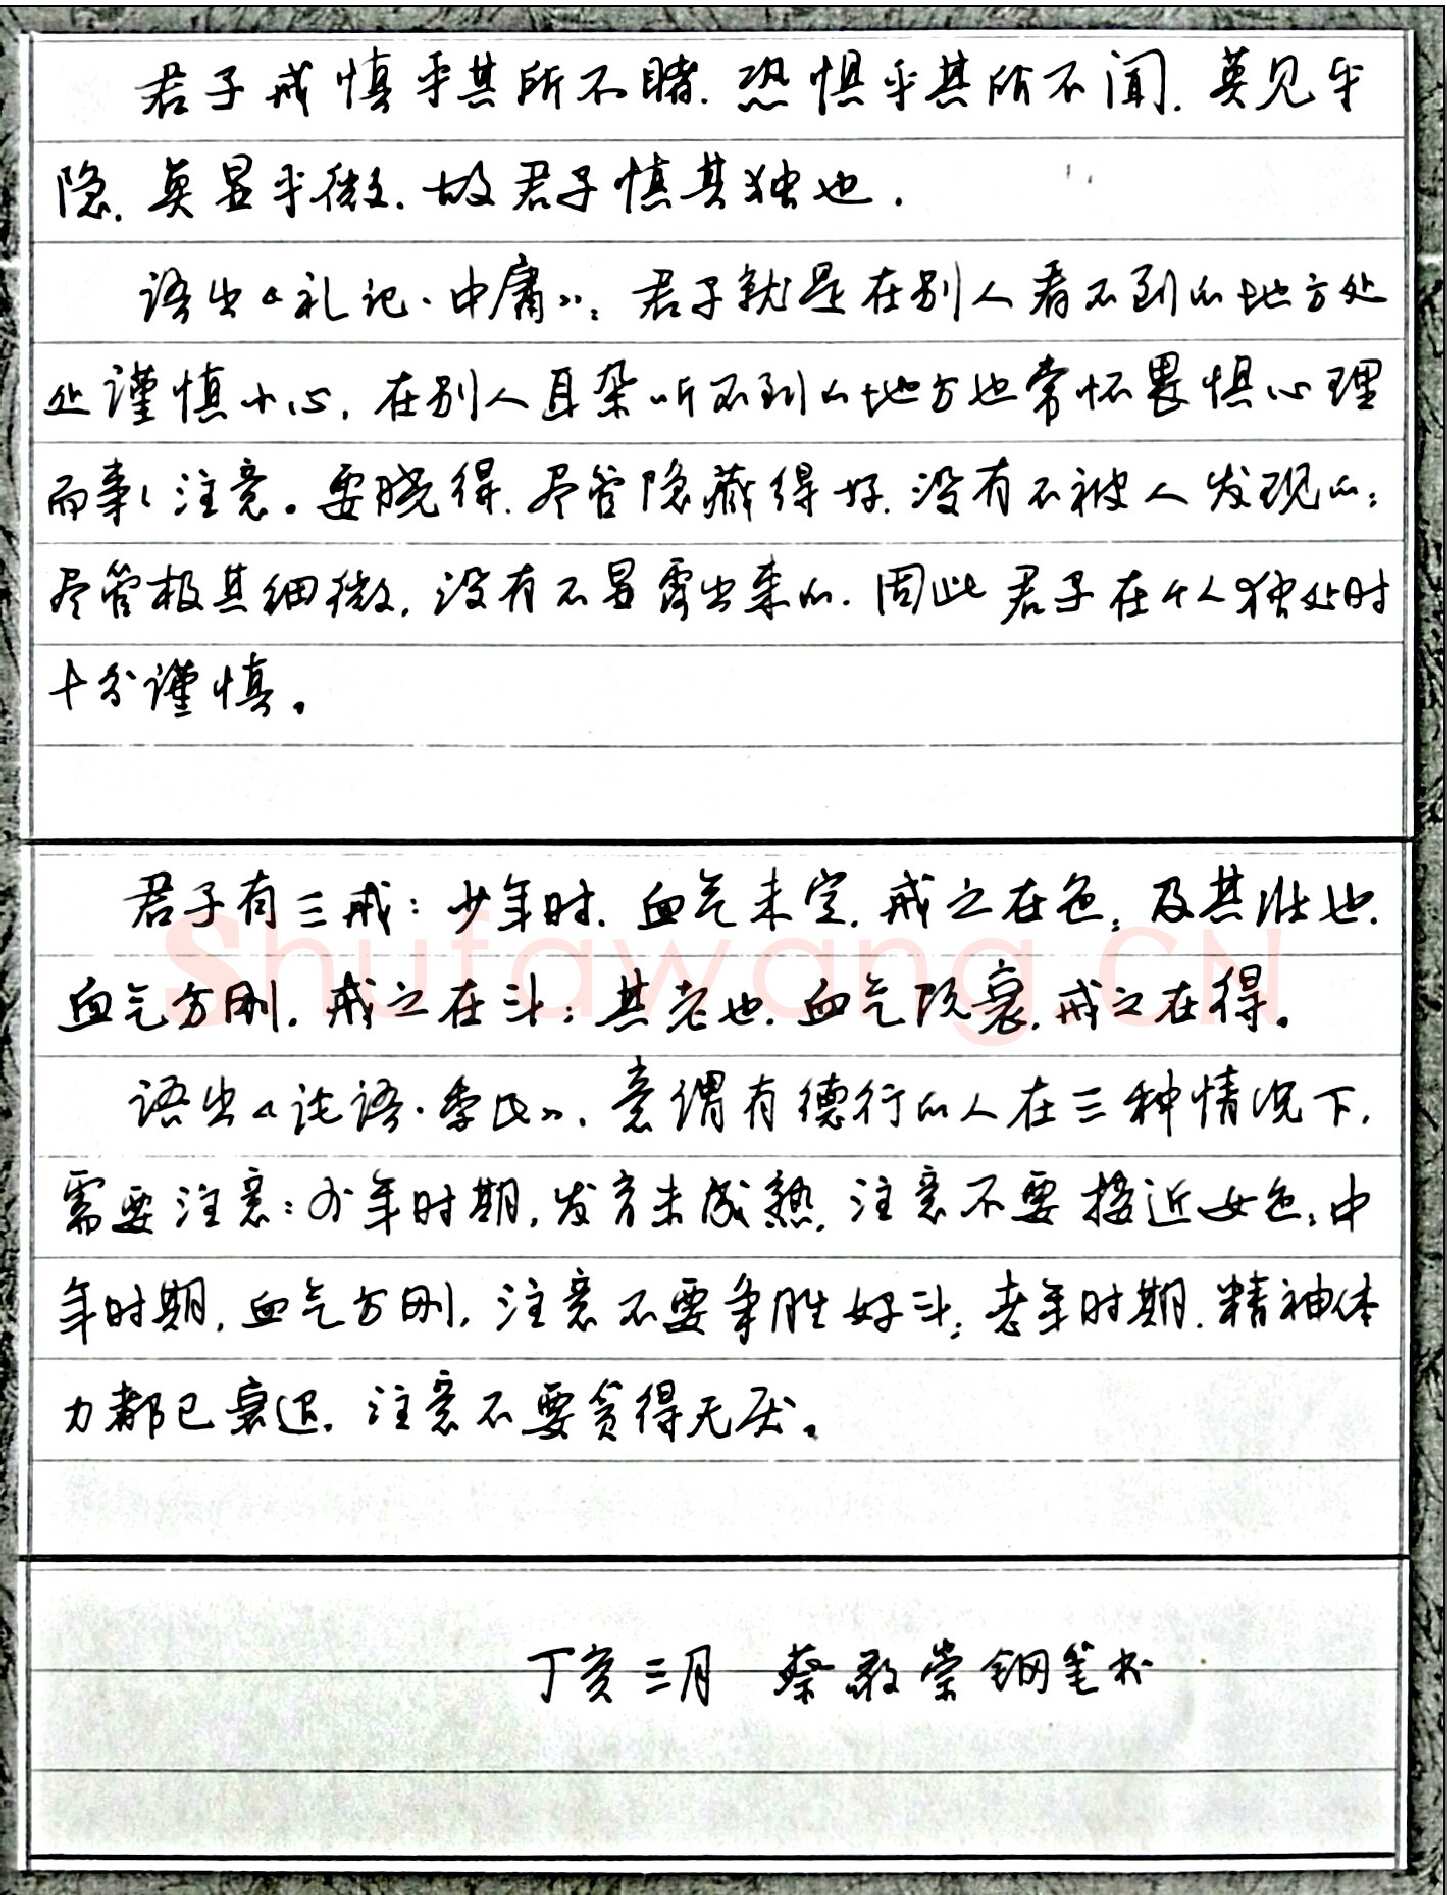 君子戒慎乎其所不睹，恐惧乎其所不闻，莫见乎
隐，莫显乎微，故君子慎其独也．
语出《礼记·中庸》：君子就是在别人看不到的地方处
处谨慎小心，在别人耳朵听不到的地方也常怀畏惧心理
而事々注意。要晓得，尽管隐藏得好，没有不被人发现的；
尽管极其细微，没有不显露出来的．因此君子在个人独处时
十分谨慎。
君子有三戒：少年时，血气未定，戒之在色；及其壮也，
血气方刚，戒之在斗；其老也，血气既衰，戒之在得。
语出《论语·季氏》，意谓有德行的人在三种情况下，
需要注意：少年时期，发育未成熟，注意不要接近女色；中
年时期，血气方刚，注意不要争胜好斗；老年时期，精神体
力都已衰退，注意不要贪得无厌。
丁亥三月 蔡敬崇钢笔书
Shufawang.CN